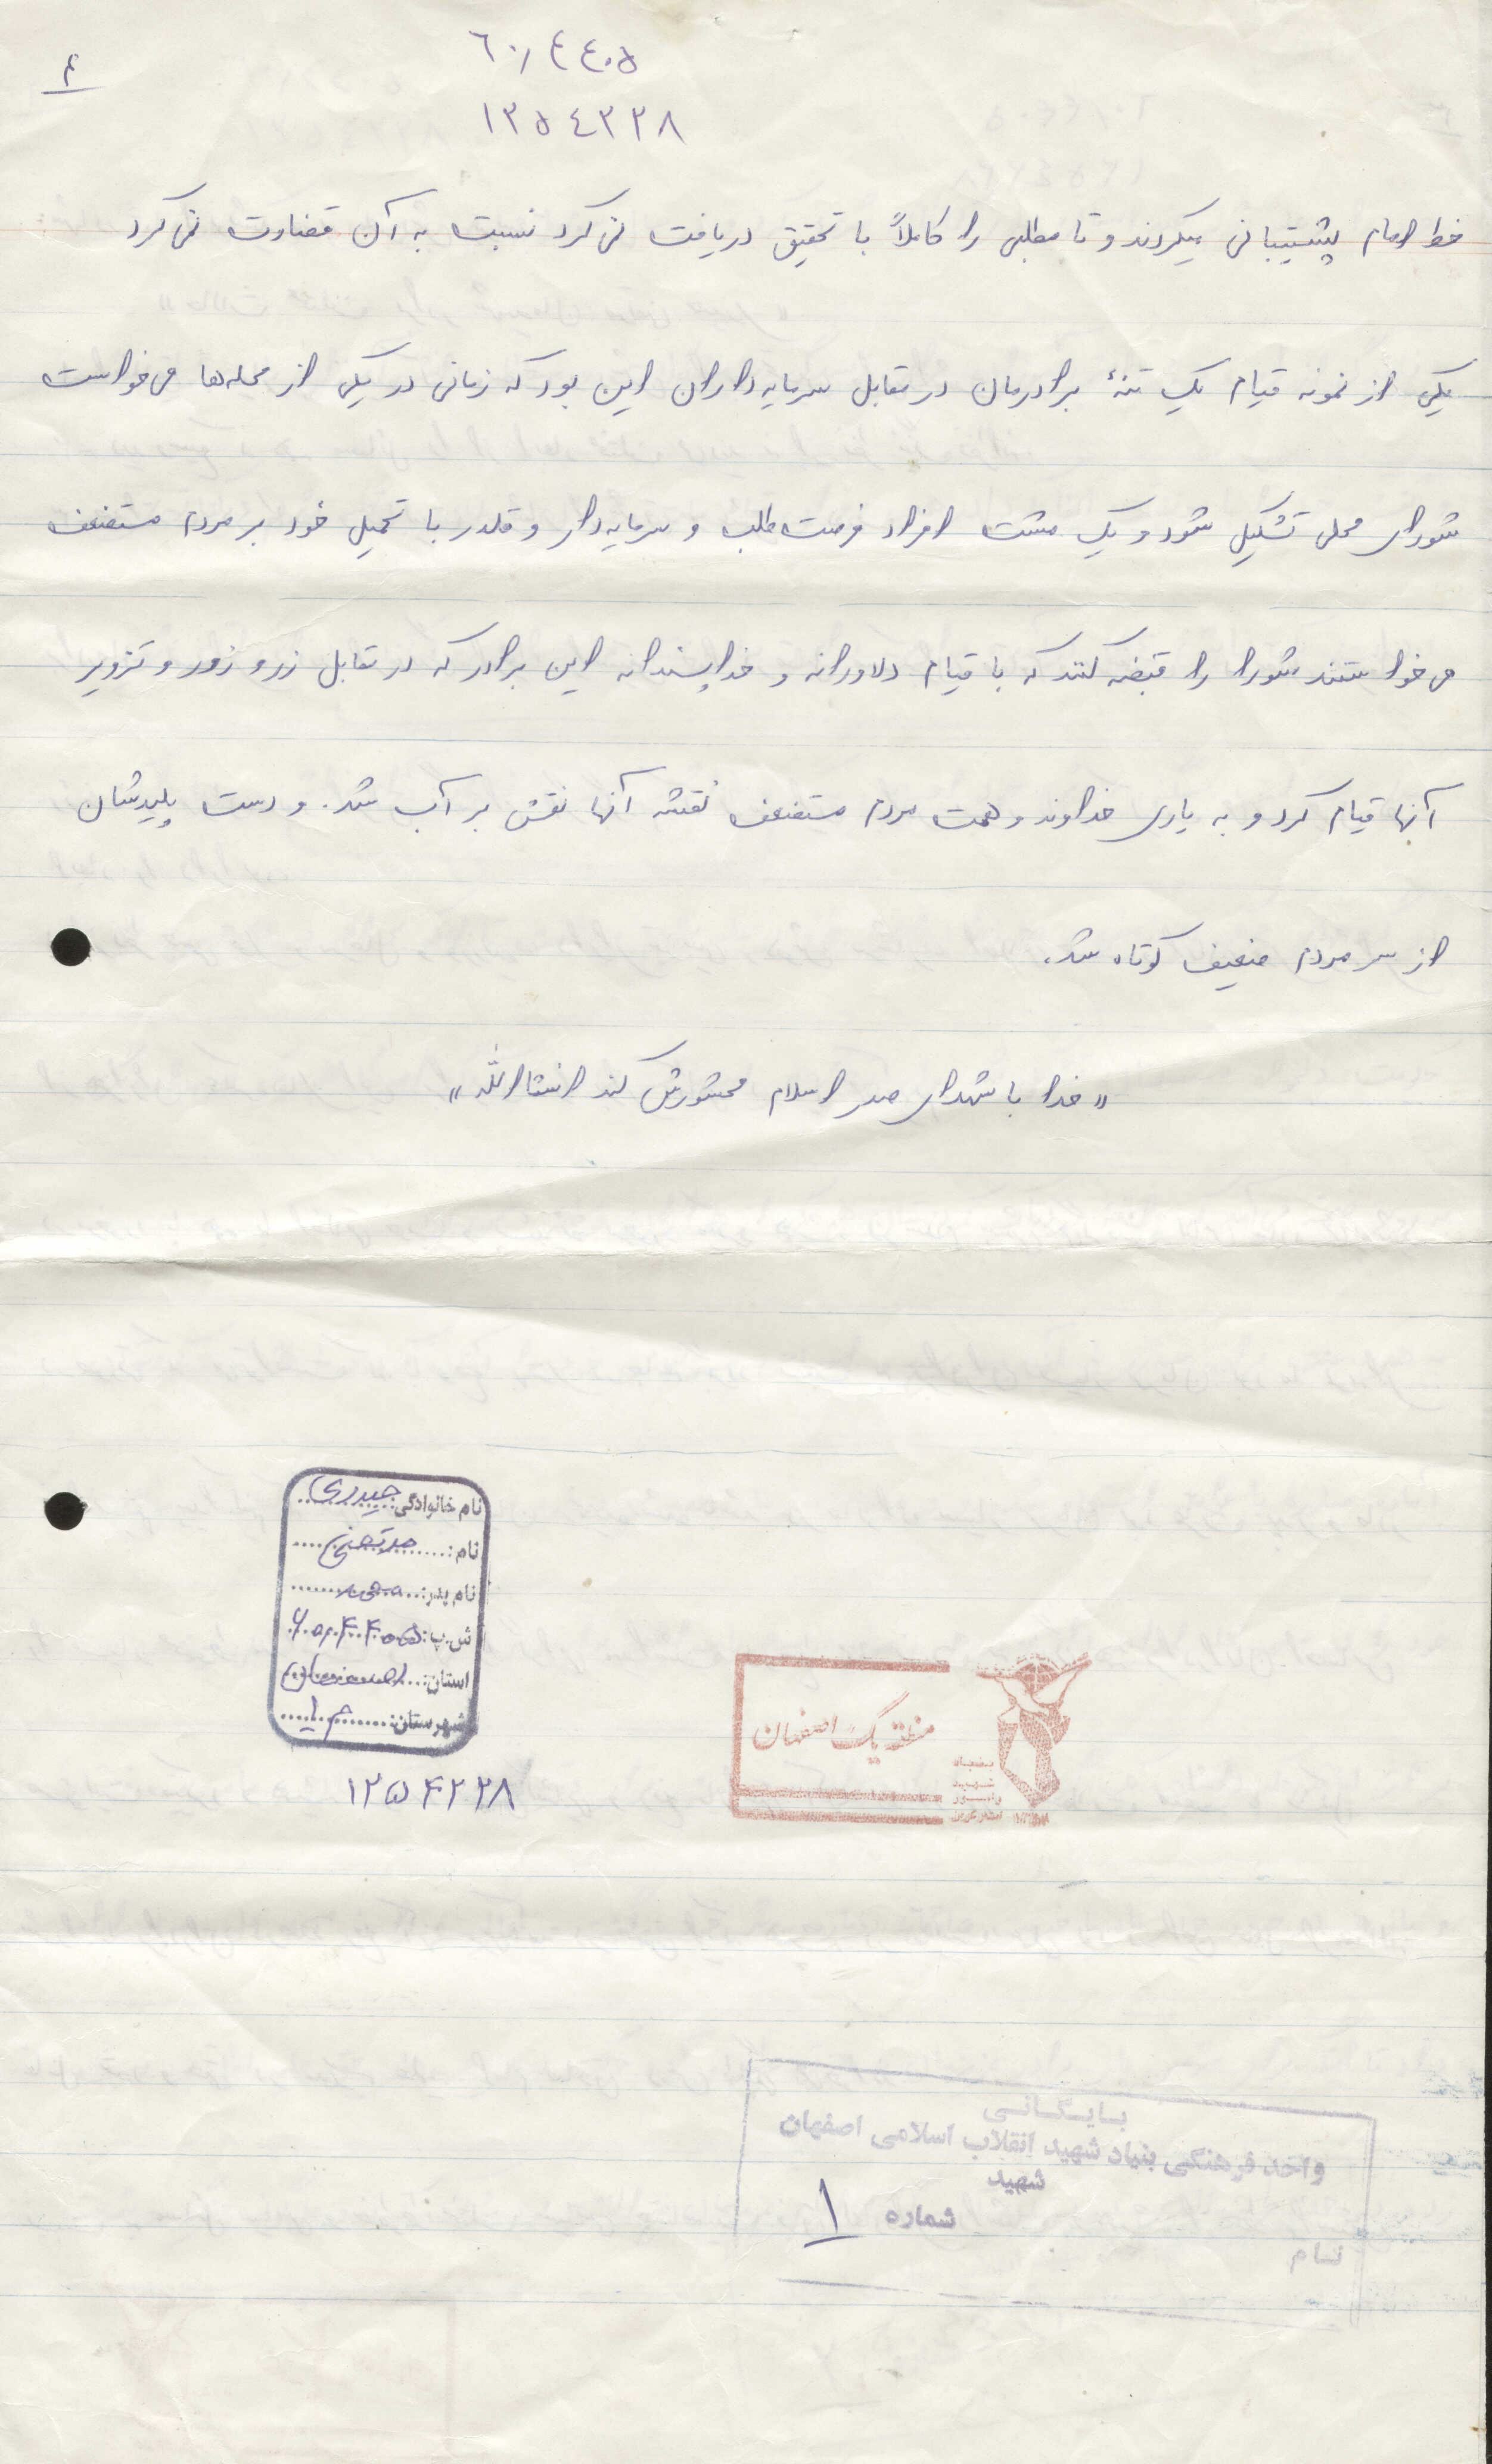 ۶۰/۴۴۰۵
۴
۱۳۵۴۲۳۸
خط امام پشتیبانی میکردند و تا مطلبی را کاملاً با تحقیق دریافت نمی‌کرد نسبت به آن قضاوت نمی‌کرد
یکی از نمونه قیام یک تنهٔ برادرمان در مقابل سرمایه‌داران این بود که زمانی در یکی از محله‌ها می‌خواست
شورای محلی تشکیل شود و یک مشت افراد فرصت‌طلب و سرمایه‌دار و قلدر با تحمیل خود بر مردم مستضعف
می‌خواستند شورا را قبضه کنند که با قیام دلاورانه و خداپسندانه این برادر که در مقابل زر و زور و تزویر
آنها قیام کرد و به یاری خداوند و همت مردم مستضعف نقشه آنها نقش بر آب شد. و دست پلیدشان
از سر مردم ضعیف کوتاه شد.
«خدا با شهدای صدر اسلام محشورش کند انشاالله»
نام خانوادگی: حیدری
نام: مرتضی
نام پدر:
ش.پ: ۶۰۴۴۰۵
استان: اصفهان
شهرستان: م ۱
۱۲۵۴۲۳۸
منطقه یک اصفهان
بنیاد
شهید
بایگانی
واحد فرهنگی بنیاد شهید انقلاب اسلامی اصفهان
شهید
شماره ۱
نام